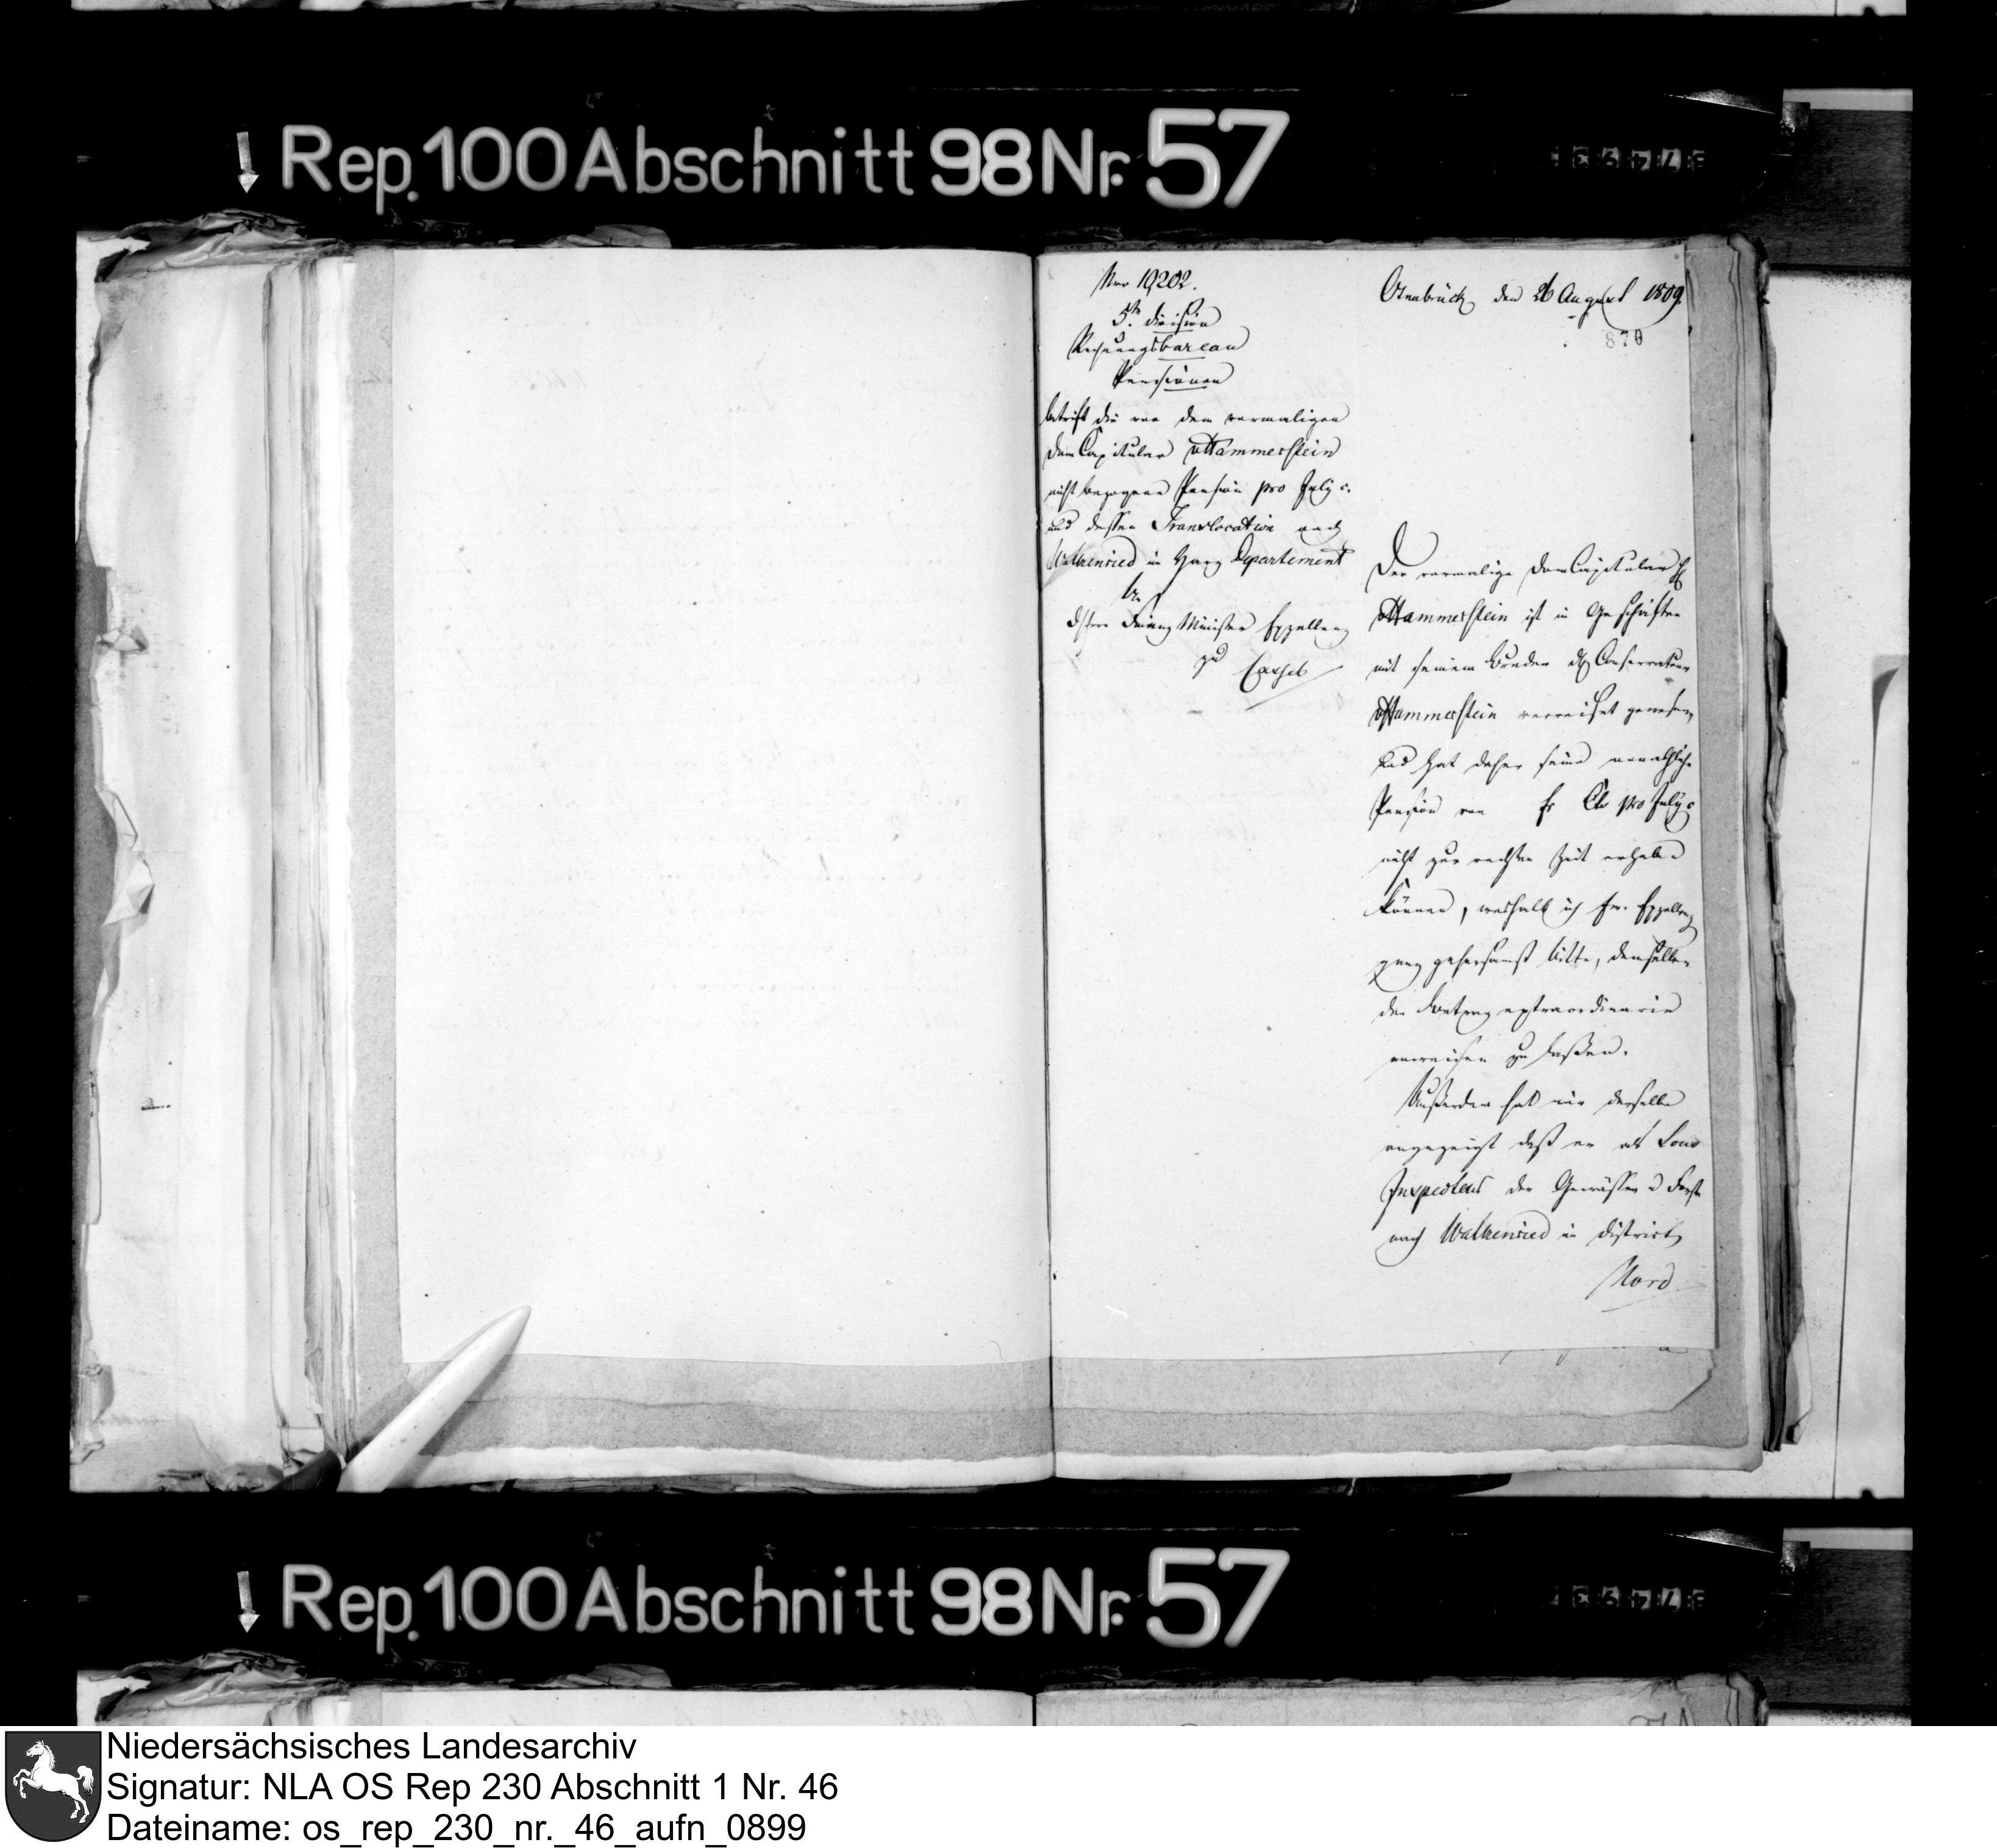 Rep. 100 Abschnitt 98 Nr. 57
Nro 19,202.
5te Division
Rechnungsbureau
Pensionen
betrift die von dem vormaligen
DomCapitular v Hammerstein
nicht bezogene Pension pro July c.
und dessen Translocation nach
Walkenried im Harz Departement
An
Finanz Minister Exzellenz
zu Cassel
Osnabrück den 26 August 1809.
870
Der vormalige DomCapitular H
v Hammerstein ist in Geschäften
mit seinem Bruder Conservateur
v Hammerstein verreiset gewesen,
und hat daher seine monathliche
Pension von fr Cts pro July c
nicht zur rechten Zeit erheben
können, weshalb ich Ew. Exzellenz
ganz gehorsamst bitte, demselben
den Betrag extraordinarie
anweisen zu lassen.
Außerdem hat mir derselbe
angezeigt daß er als Sous
Inspecteur der Gewässer u Forste
nach Walkenried im District
Nord
Rep. 100 Abschnitt 98 Nr. 57
Niedersächsisches Landesarchiv
Signatur: NLA OS Rep 230 Abschnitt 1 Nr. 46
Dateiname: os_rep_230_nr._46_aufn_0899